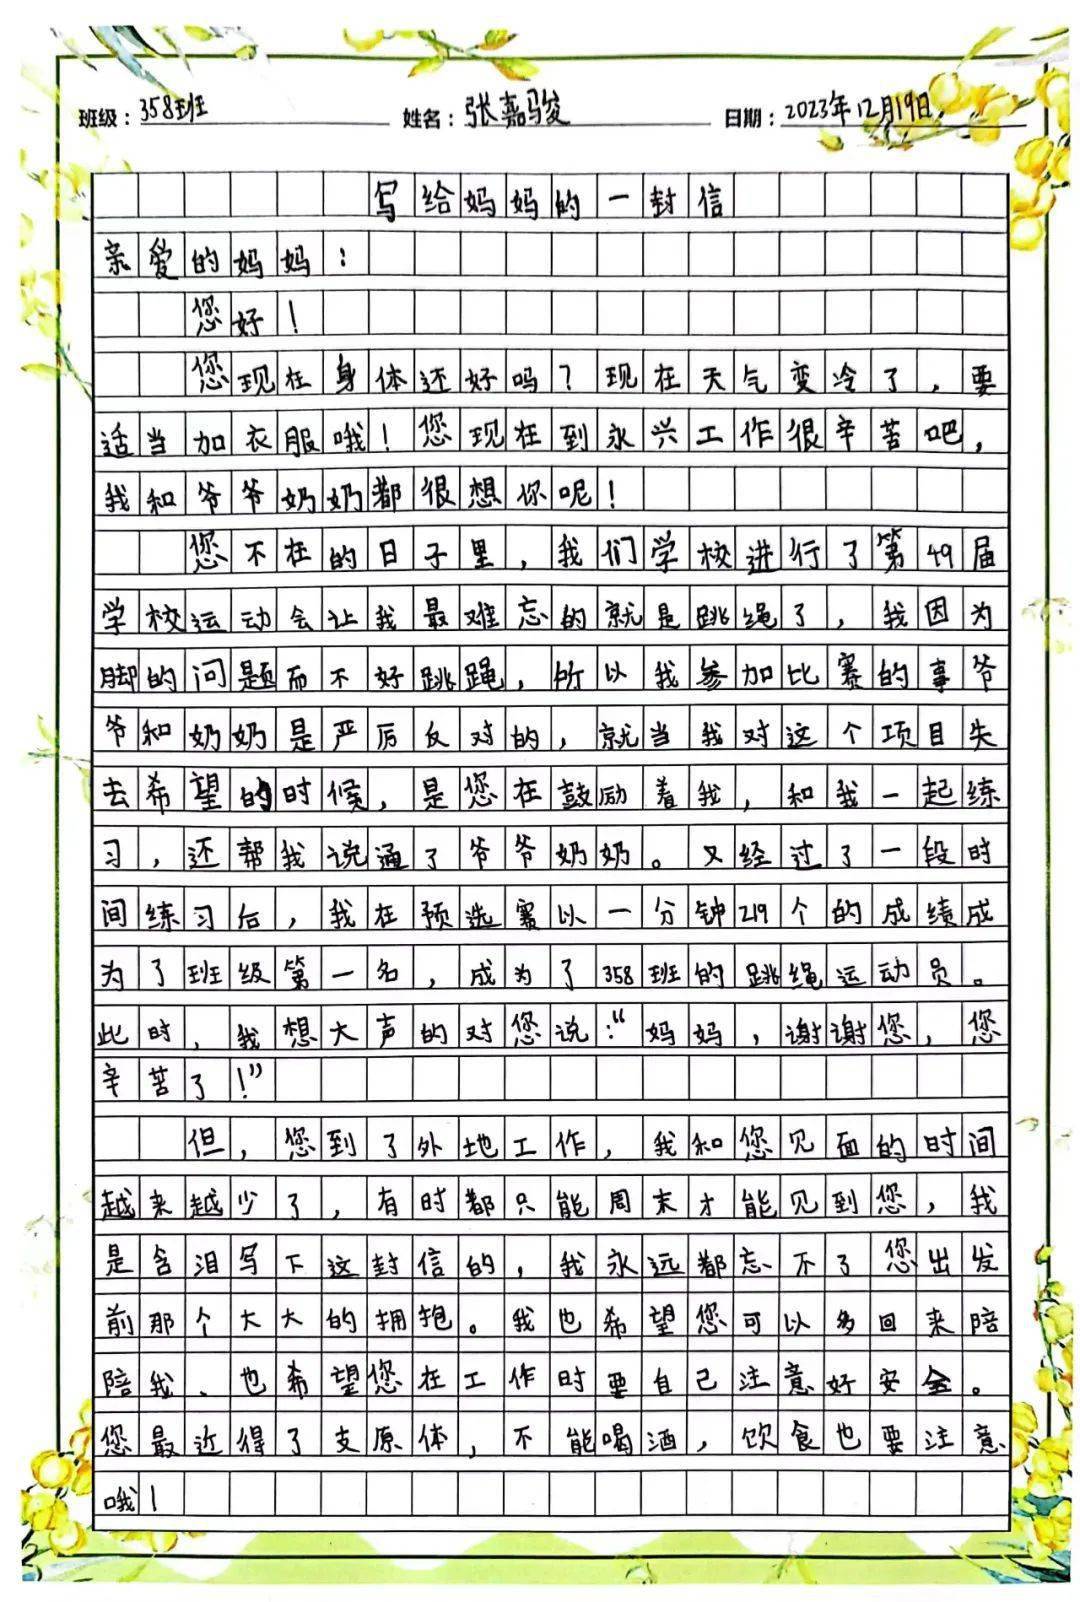 班级：358班 姓名：张嘉骏 日期：2023年12月19日
写给妈妈的一封信
亲爱的妈妈：
您好！
您现在身体还好吗？现在天气变冷了，要
适当加衣服哦！您现在到永兴工作很辛苦吧，
我和爷爷奶奶都很想你呢！
您不在的日子里，我们学校进行了第49届
学校运动会让我最难忘的就是跳绳了，我因为
脚的问题而不好跳绳，所以我参加比赛的事爷
爷和奶奶是严厉反对的，就当我对这个项目失
去希望的时候，是您在鼓励着我，和我一起练
习，还帮我说通了爷爷奶奶。又经过了一段时
间练习后，我在预选赛以一分钟219个的成绩成
为了班级第一名，成为了358班的跳绳运动员。
此时，我想大声的对您说：“妈妈，谢谢您，您
辛苦了！”
但，您到了外地工作，我和您见面的时间
越来越少了，有时都只能周末才能见到您，我
是含泪写下这封信的，我永远都忘不了您出发
前那个大大的拥抱。我也希望您可以多回来陪
陪我、也希望您在工作时要自己注意好安全。
您最近得了支原体，不能喝酒，饮食也要注意
哦！